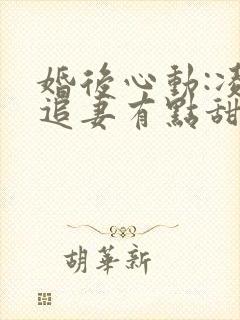 婚後心動:凌
追妻有點甜
胡華新